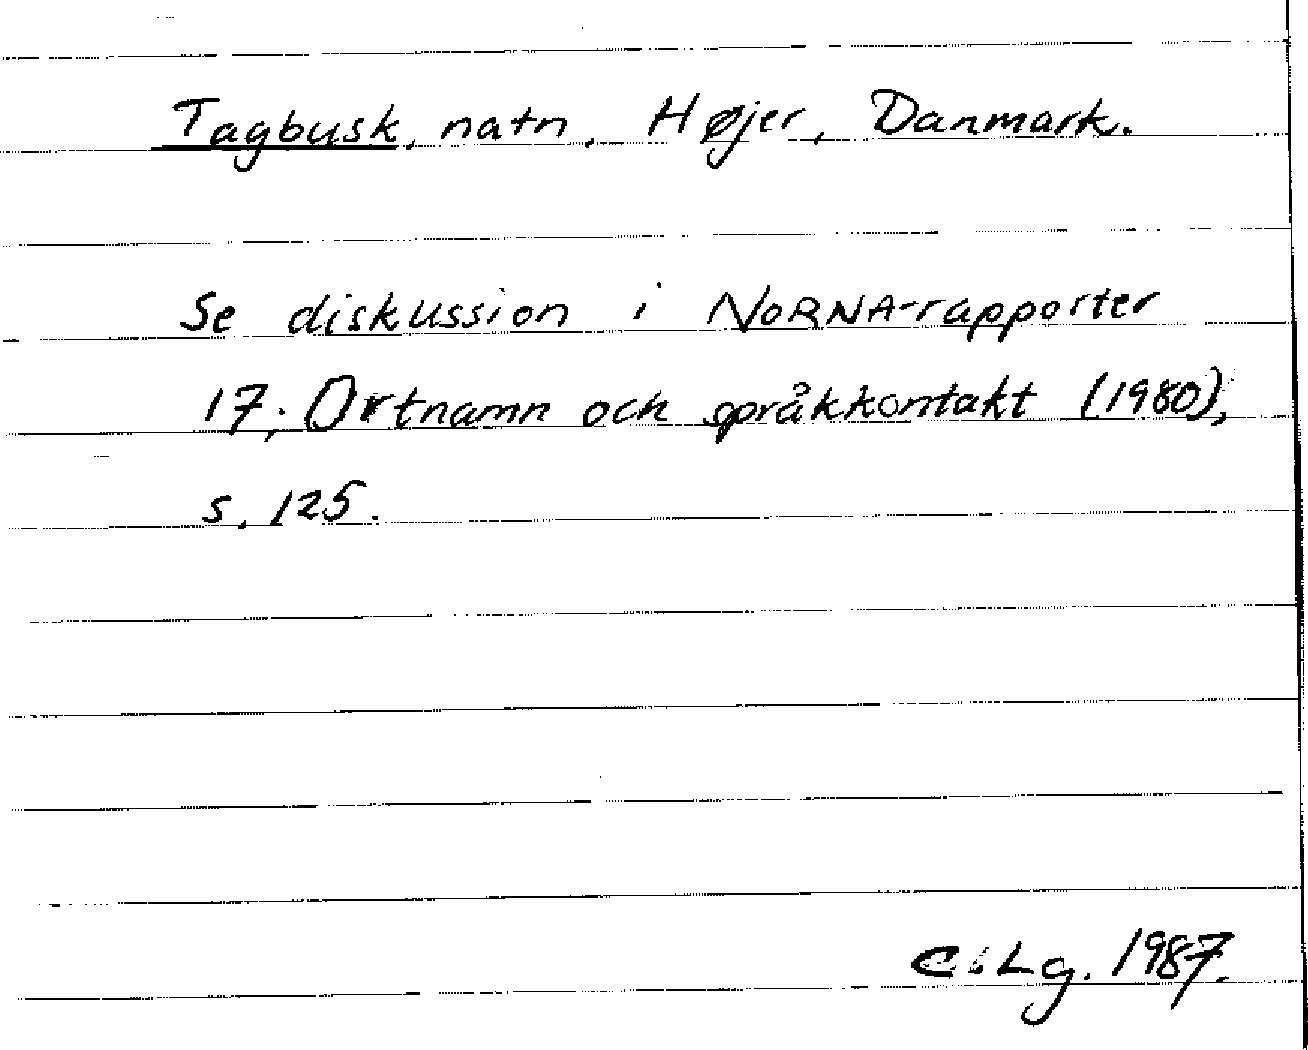 Tagbusk, natn, Højer, Danmark.
Se diskussion i NORNA-rapporter
17; Ortnamn och språkkontakt (1980),
s. 125.
C. Lg. 1987.